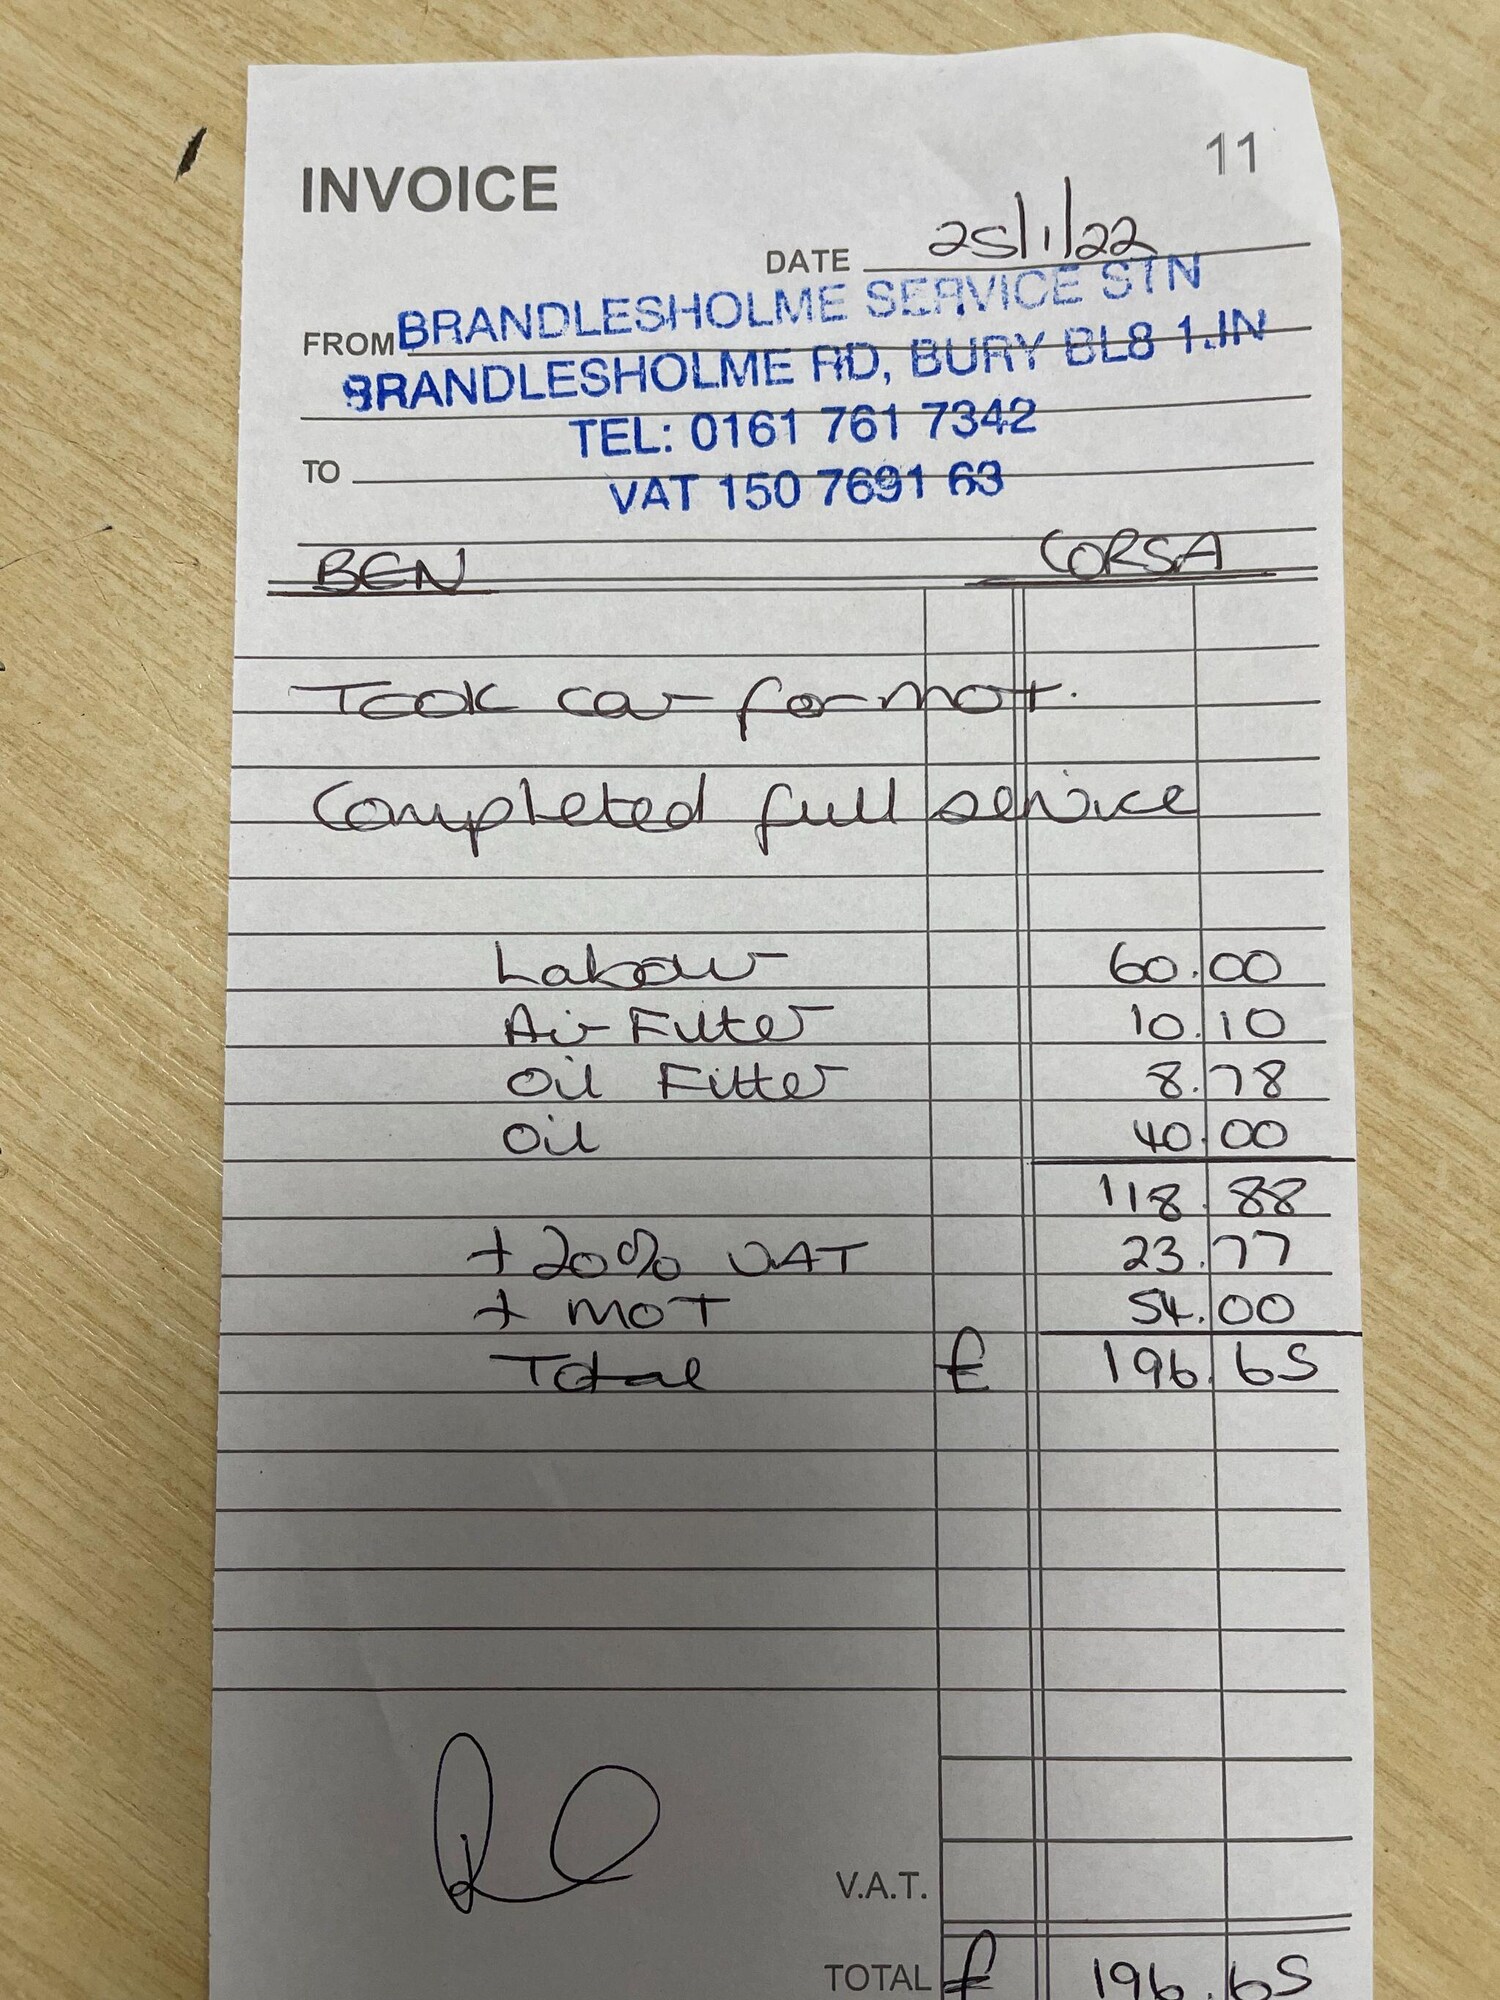 11
INVOICE
DATE 25/1/22
FROM BRANDLESHOLME SERVICE STN
BRANDLESHOLME RD, BURY BL8 1JN
TEL: 0161 761 7342
TO
VAT 150 7691 63
BEN CORSA
Took car for mot.
Completed full service
Labour 60.00
Air Filter 10.10
Oil Filter 8.78
Oil 40.00
118.88
+ 20% VAT 23.77
+ MOT 54.00
Total £ 196.65
V.A.T.
TOTAL £ 196.65